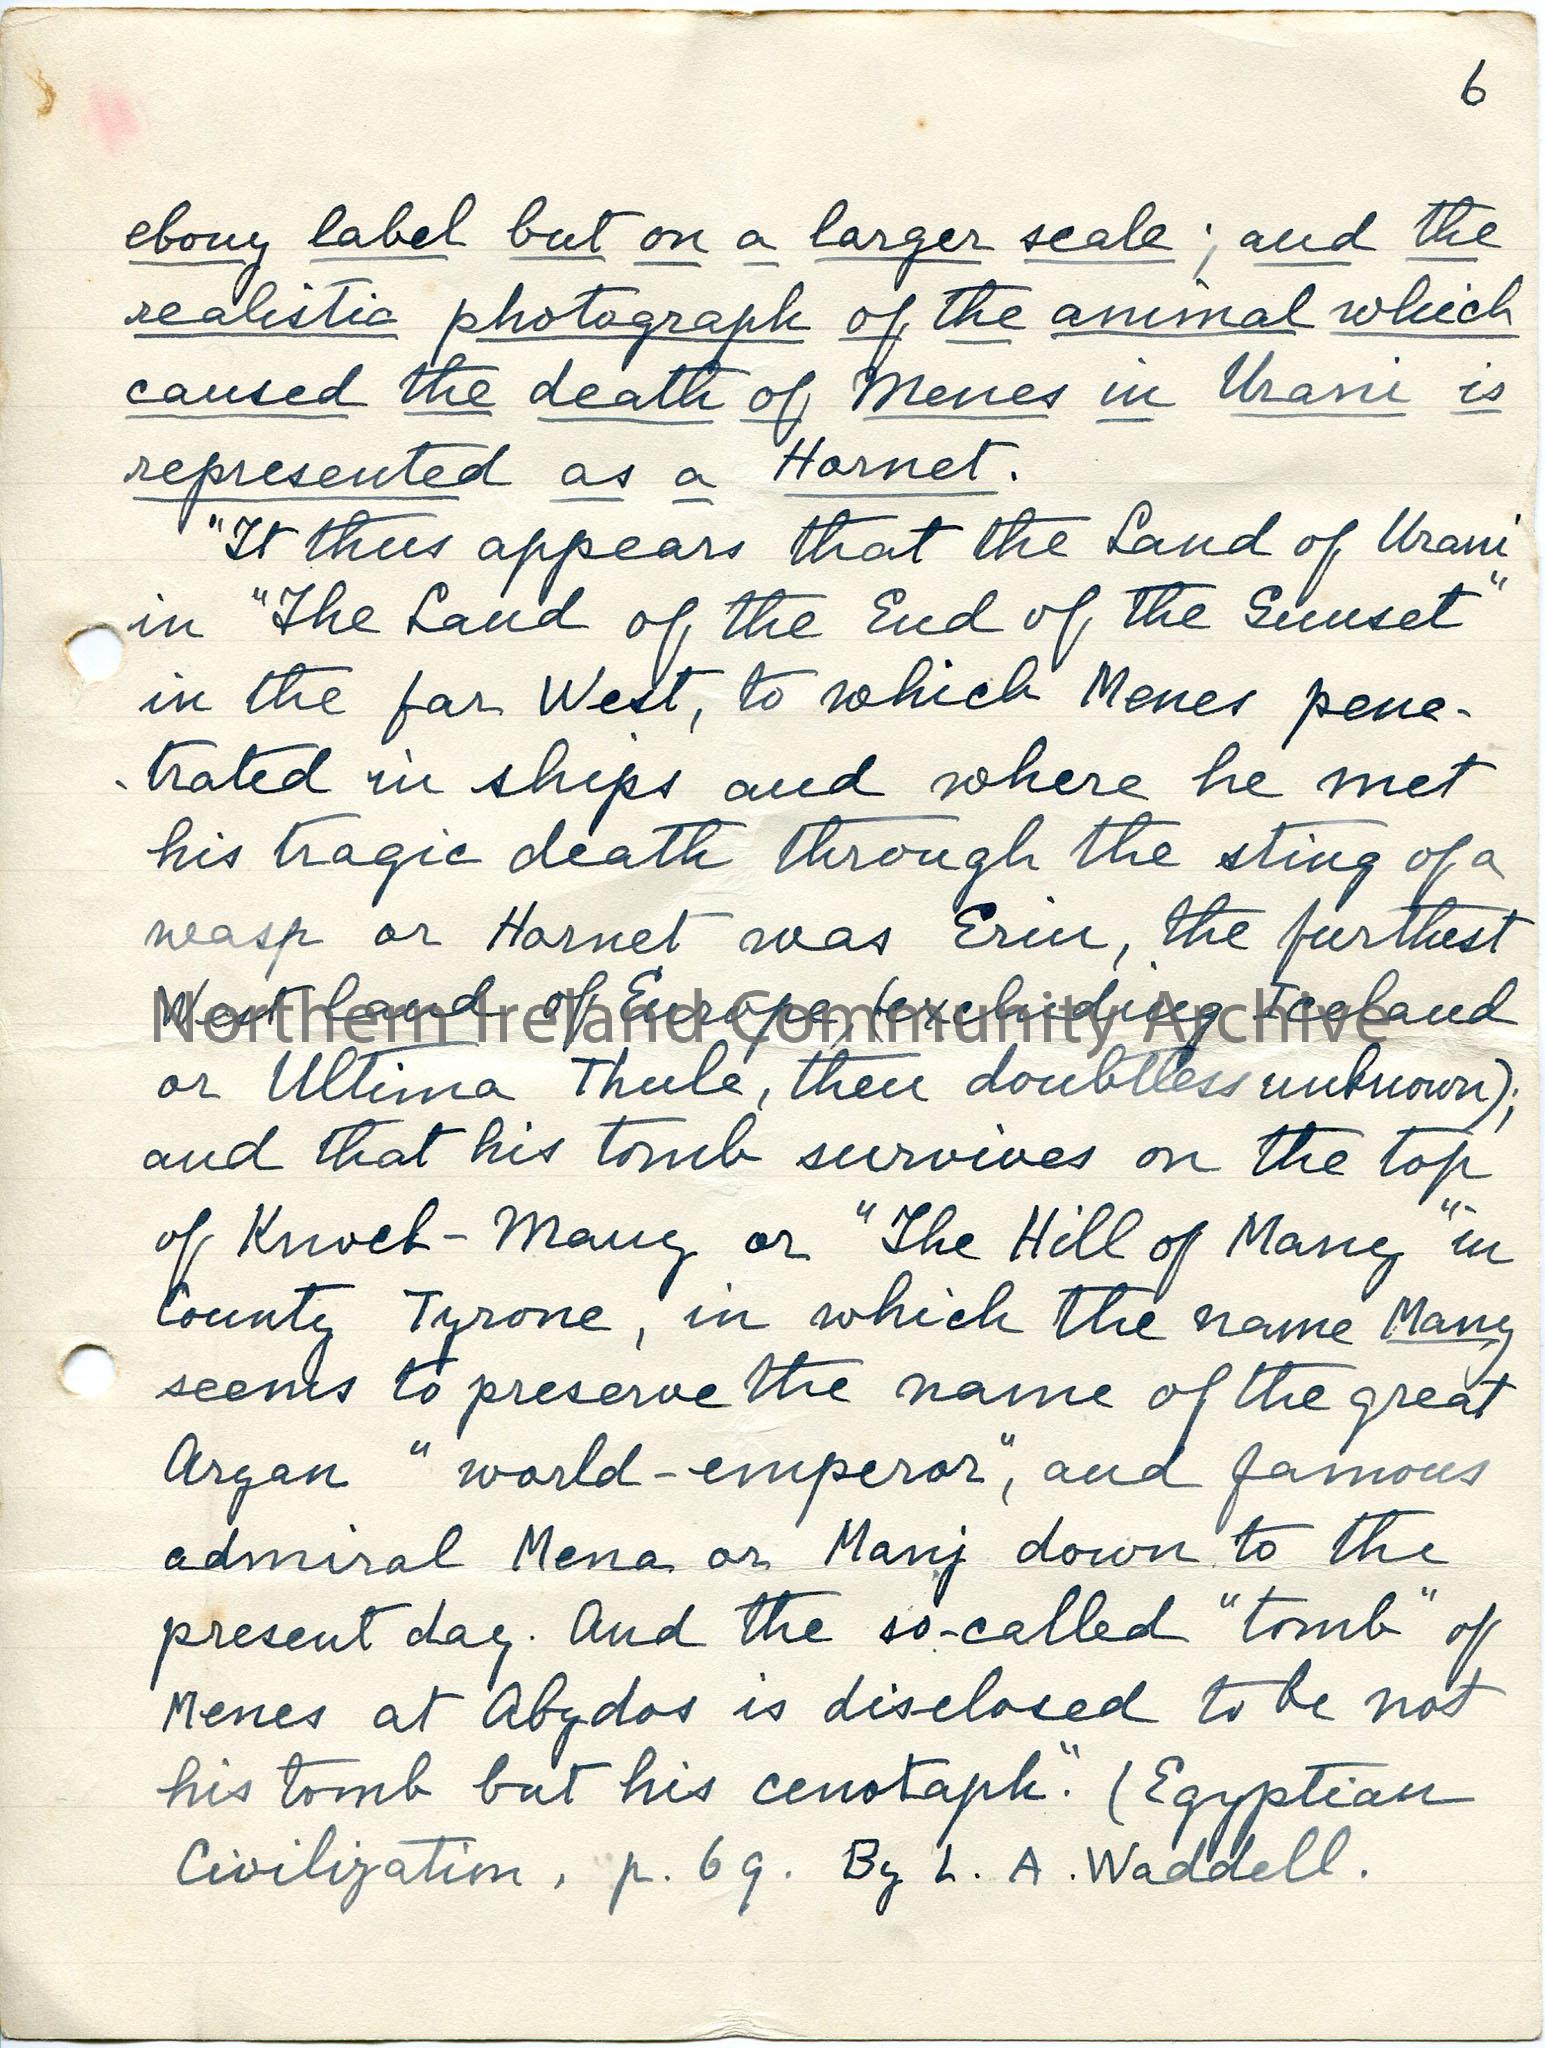 6
ebony label but on a larger scale; and the
realistic photograph of the animal which
caused the death of Menes in Urani is
represented as a Hornet.
"It thus appears that the Land of Urani
in "The Land of the End of the Sunset"
in the far West, to which Menes pene-
-trated in ships and where he met
his tragic death through the sting of a
wasp or Hornet was Erin, the furthest
West land of Europe, (excluding Iceland
Northern Ireland Community Archive
or Ultima Thule, then doubtless unknown);
and that his tomb survives on the top
of Knock-Many or "The Hill of Many" in
County Tyrone, in which the name Many
seems to preserve the name of the great
Aryan "world-emperor", and famous
admiral Mena or Manj down to the
present day. And the so-called "tomb" of
Menes at Abydos is disclosed to be not
his tomb but his cenotaph". (Egyptian
Civilization, p. 69. By L. A. Waddell.